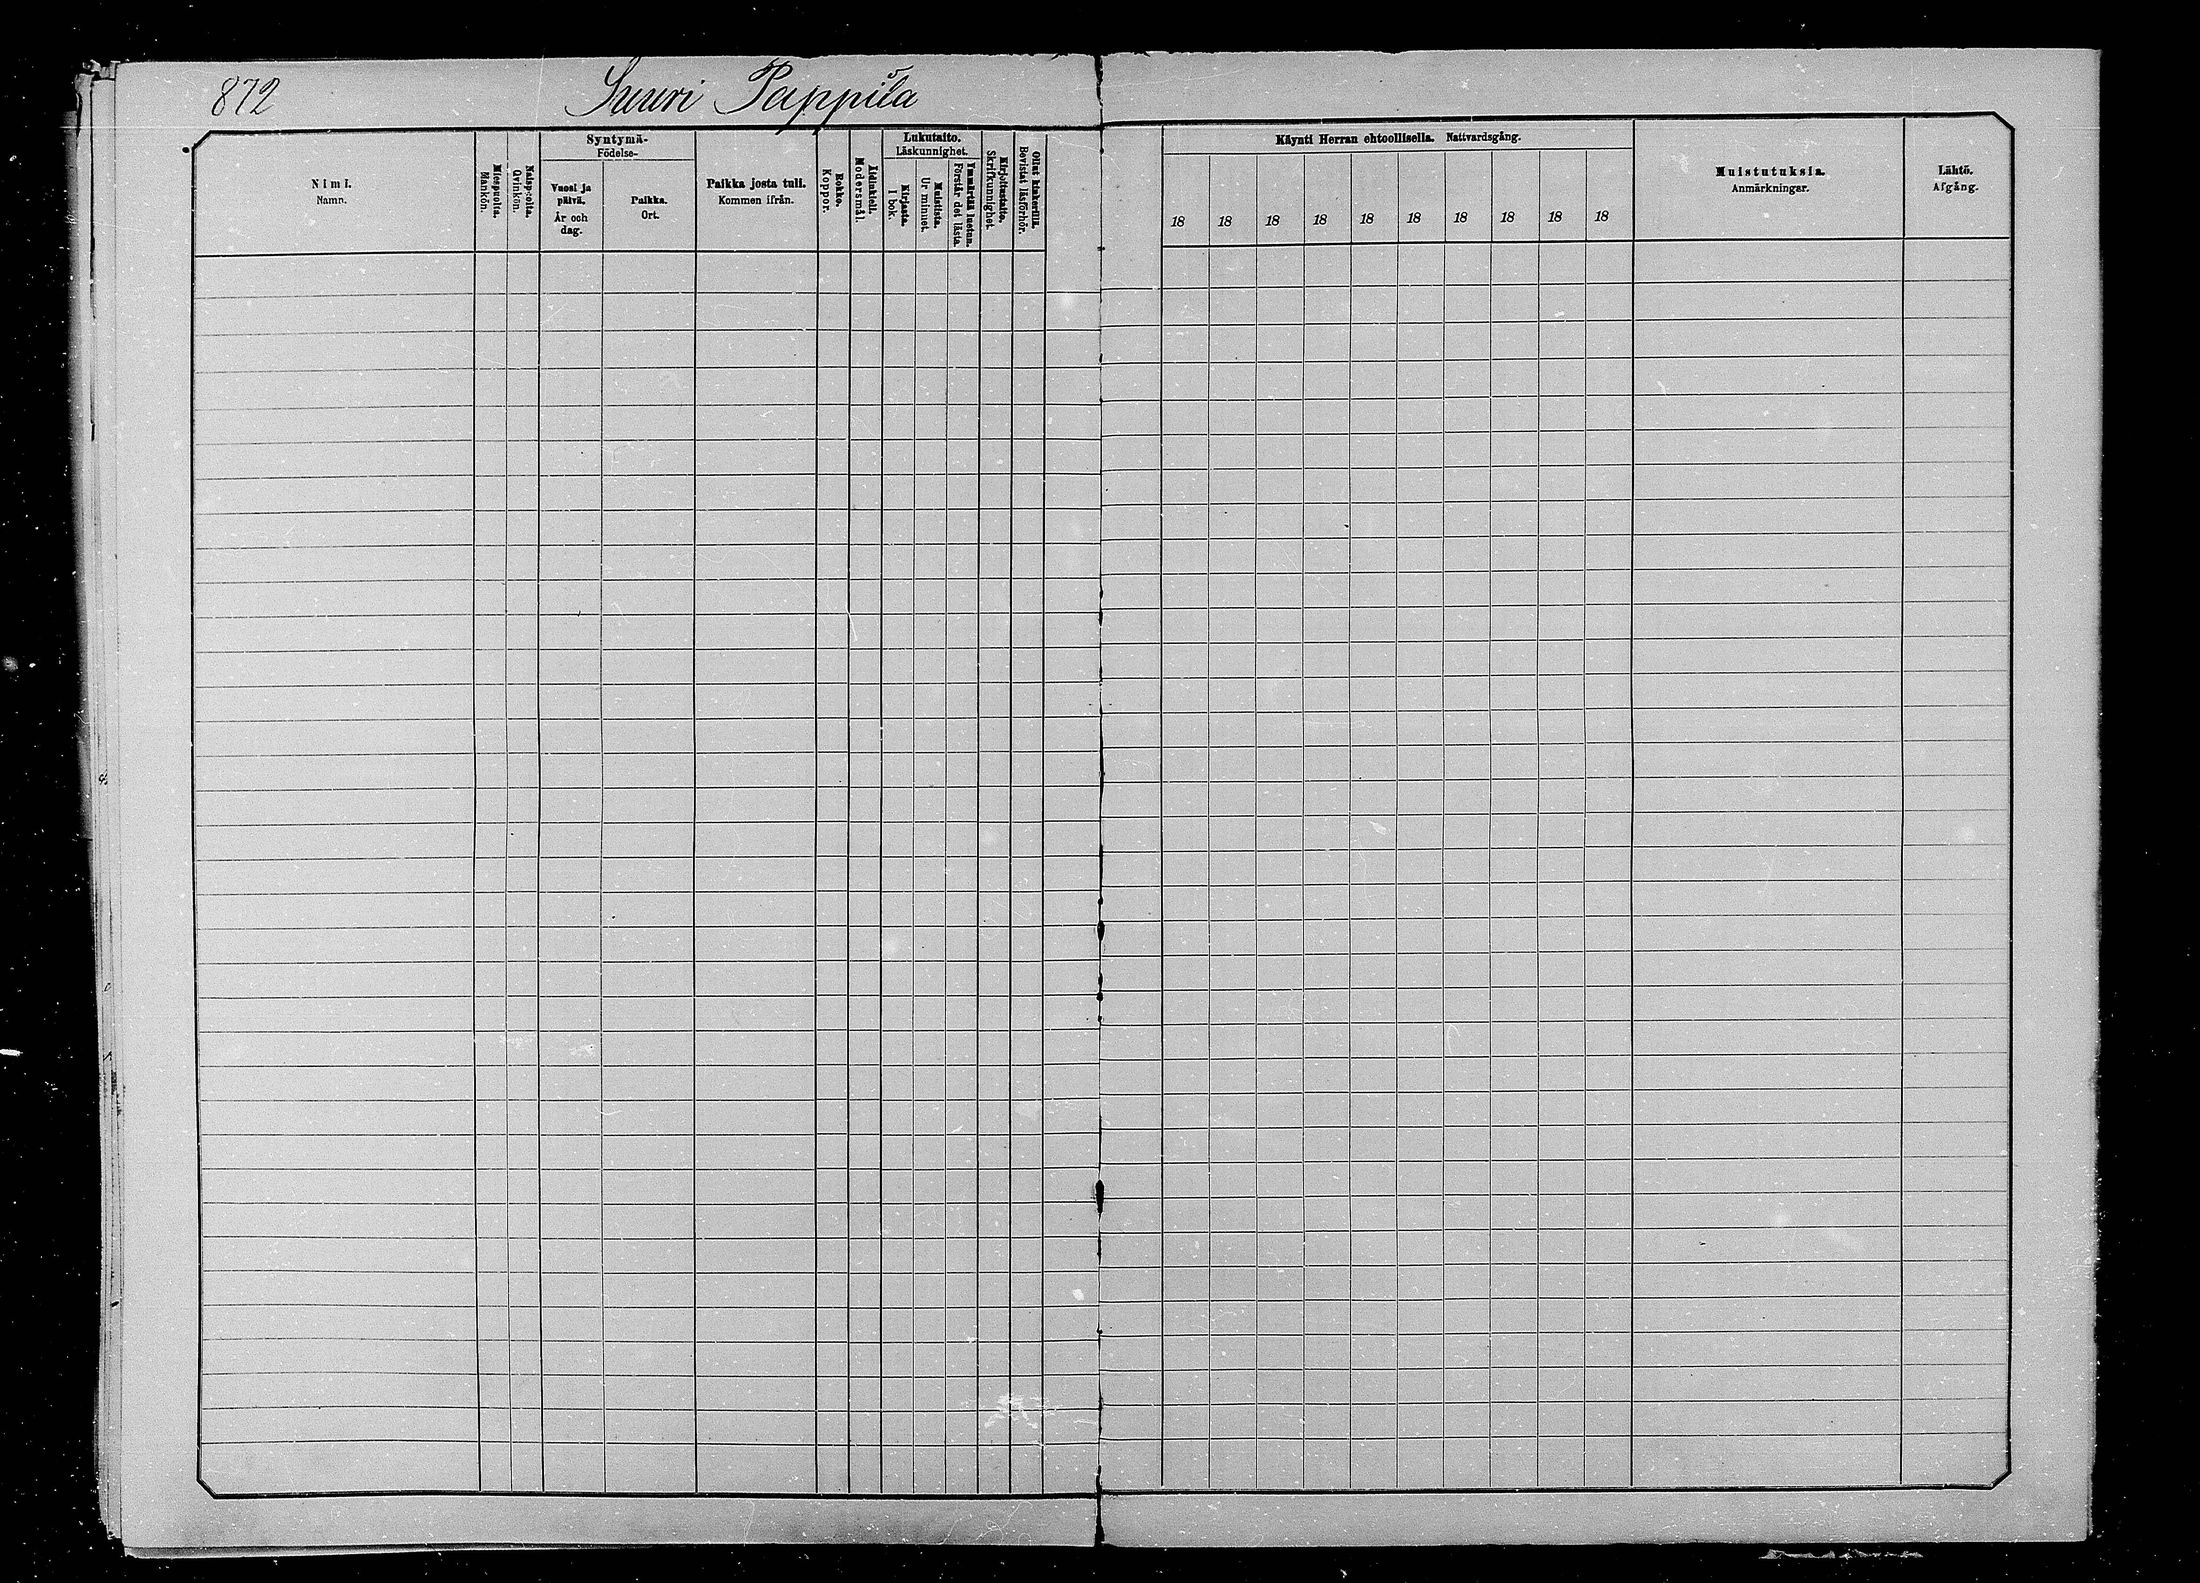 872
Suuri Pappila
Nimi.
Namn.
Miespuolta.
Mankön.
Naispuolta.
Qvinkön.
Syntymä-
Födelse-
Vuosi ja
päivä.
År och
dag.
Paikka.
Ort.
Paikka josta tuli.
Kommen ifrån.
Rokko.
Koppor.
Äidinkieli.
Modersmål.
Lukutaito.
Läskunnighet.
Kirjasta.
I bok.
Muistista.
Ur minnet.
Ymmärtää luetun.
Förstår det lästa.
Kirjoitustaito.
Skrifkunnighet.
Ollut kinkerillä.
Bevistat läsförhör.
Käynti Herran ehtoollisella. Nattvardsgång.
18 18 18 18 18 18 18 18 18 18
Muistutuksia.
Anmärkningar.
Lähtö.
Afgång.